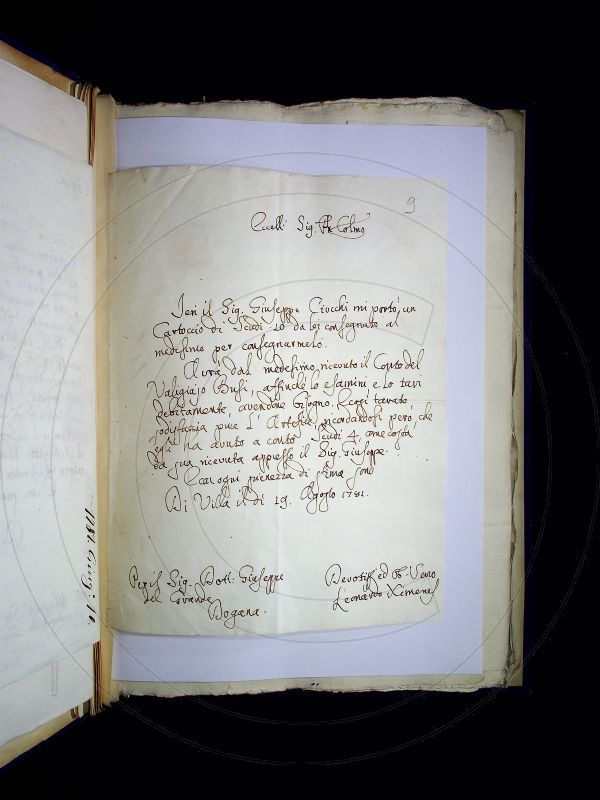 9
Eccell: Sig. Pn Colmo
Jeri il Sig. Giuseppe Ciocchi mi portò, un
Cartoccio di Scudi 20 da lei consegnato al
medesimo per consegnarmelo.
Avrà dal medesimo ricevuto il Conto del
Valigiajo Busi, affinchè lo esamini e lo tari
debitamente, avendone bisogno. E così tarato
sodisfaccia pure l'Artefice, ricordandosi però, che
egli ha avuto a conto Scudi 4, come costa
da sua ricevuta appresso il Sig. Giuseppe.
E con ogni pienezza di stima sono
Di Villa il dì 19. Agosto 1781.
Sig. Dott. Giuseppe
del Grande
Dogana.
Devotiss ed Obb. Servo
Leonardo Ximenes
1781